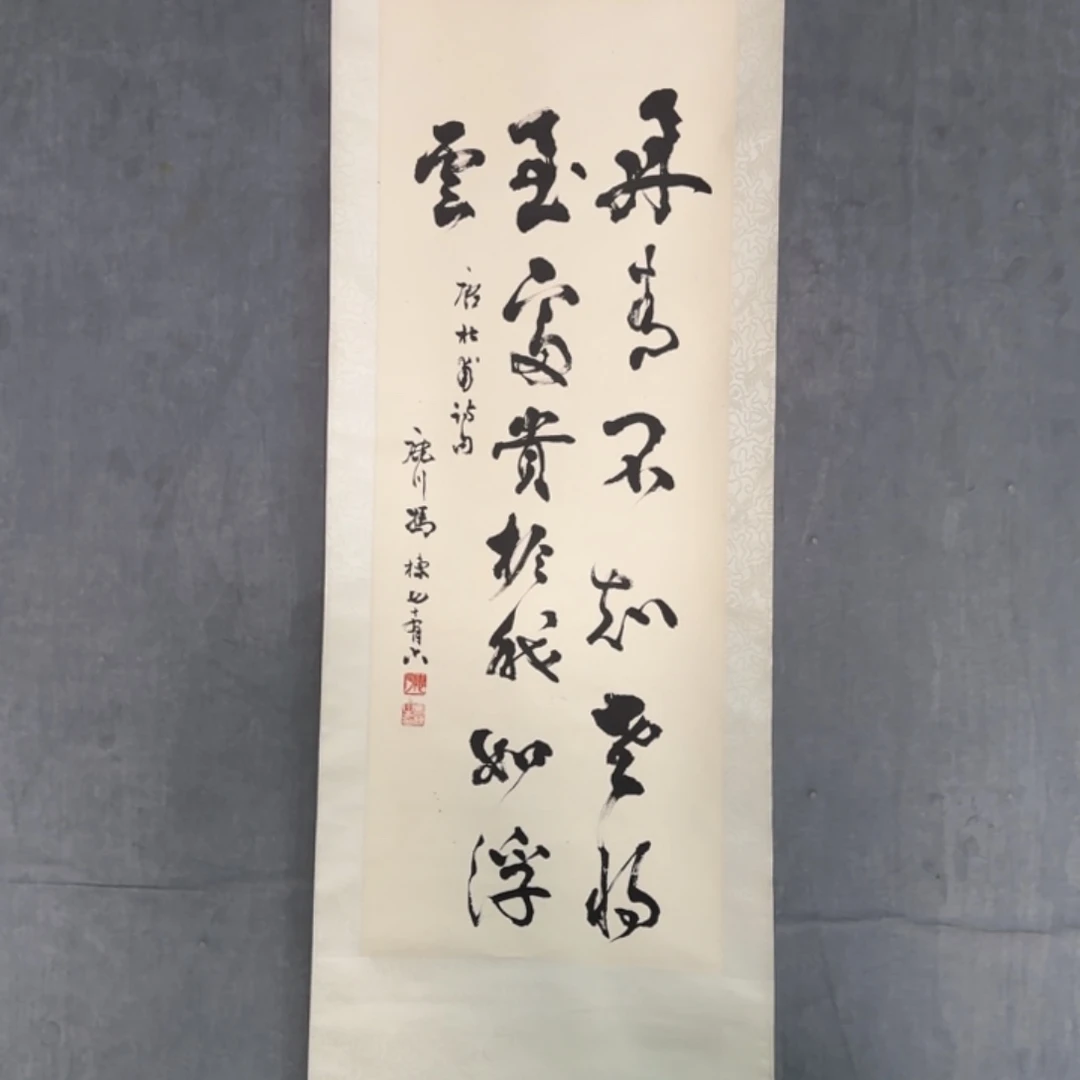 丹青不知老将
至富贵於我如浮
雲
唐杜甫诗句
鹿川 馮 七十有六